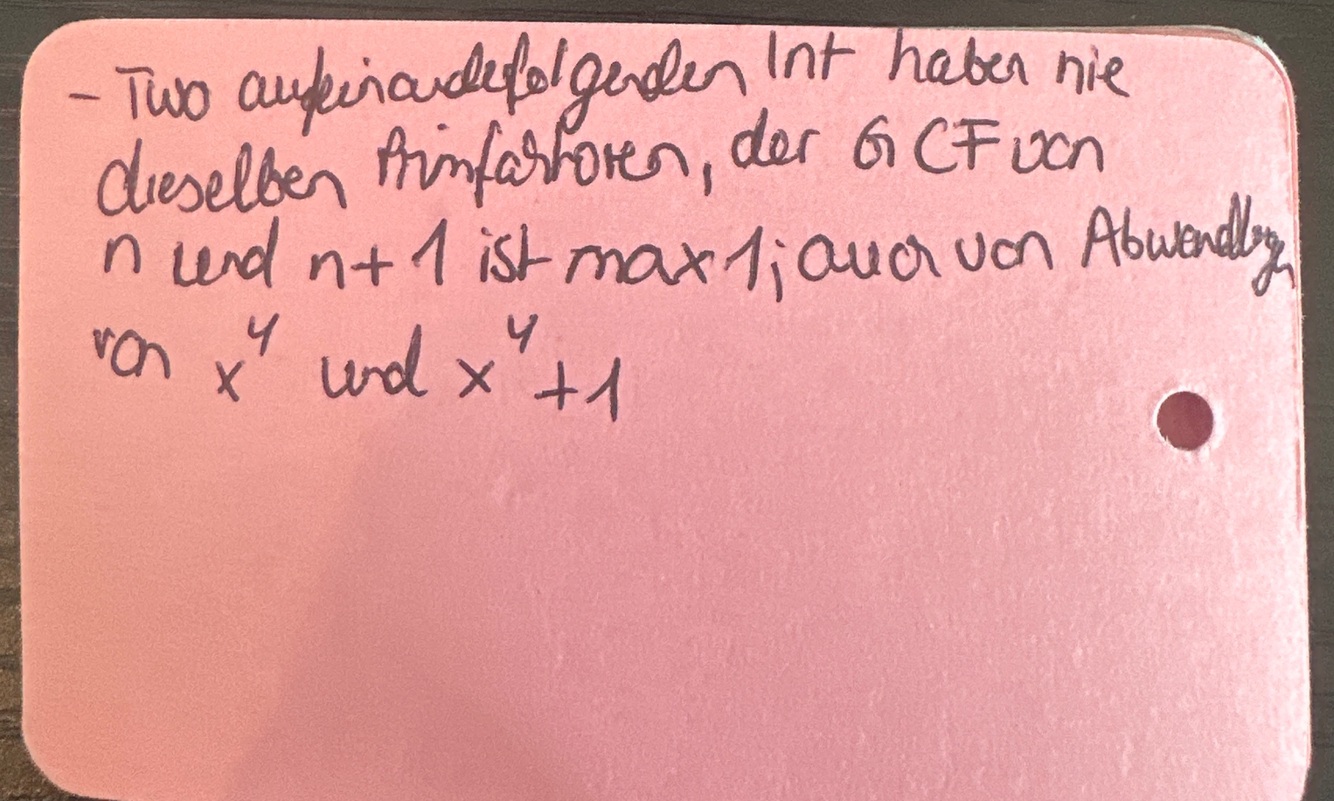 - Two aufeinanderfolgenden Int haben nie
dieselben Primfaktoren, der GCF von
n und n+1 ist max 1; auch von Abwandlungen
von x⁴ und x⁴+1